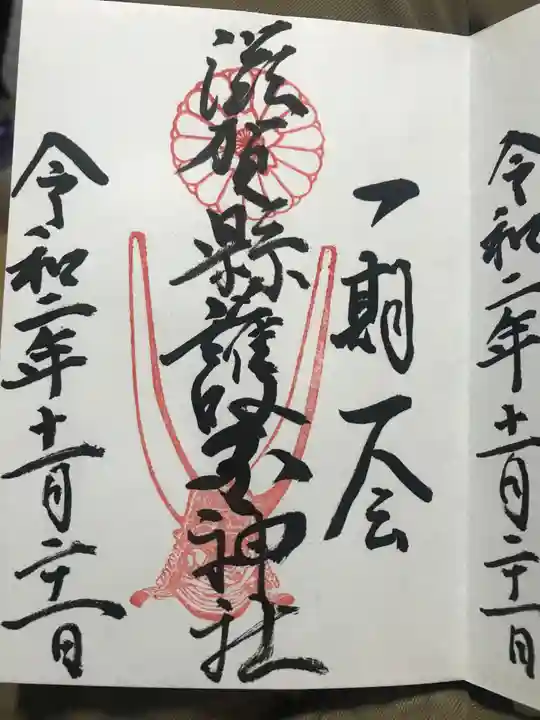 令和二年十一月二十一日
一期一会
滋賀縣護国神社
令和二年十一月二十一日